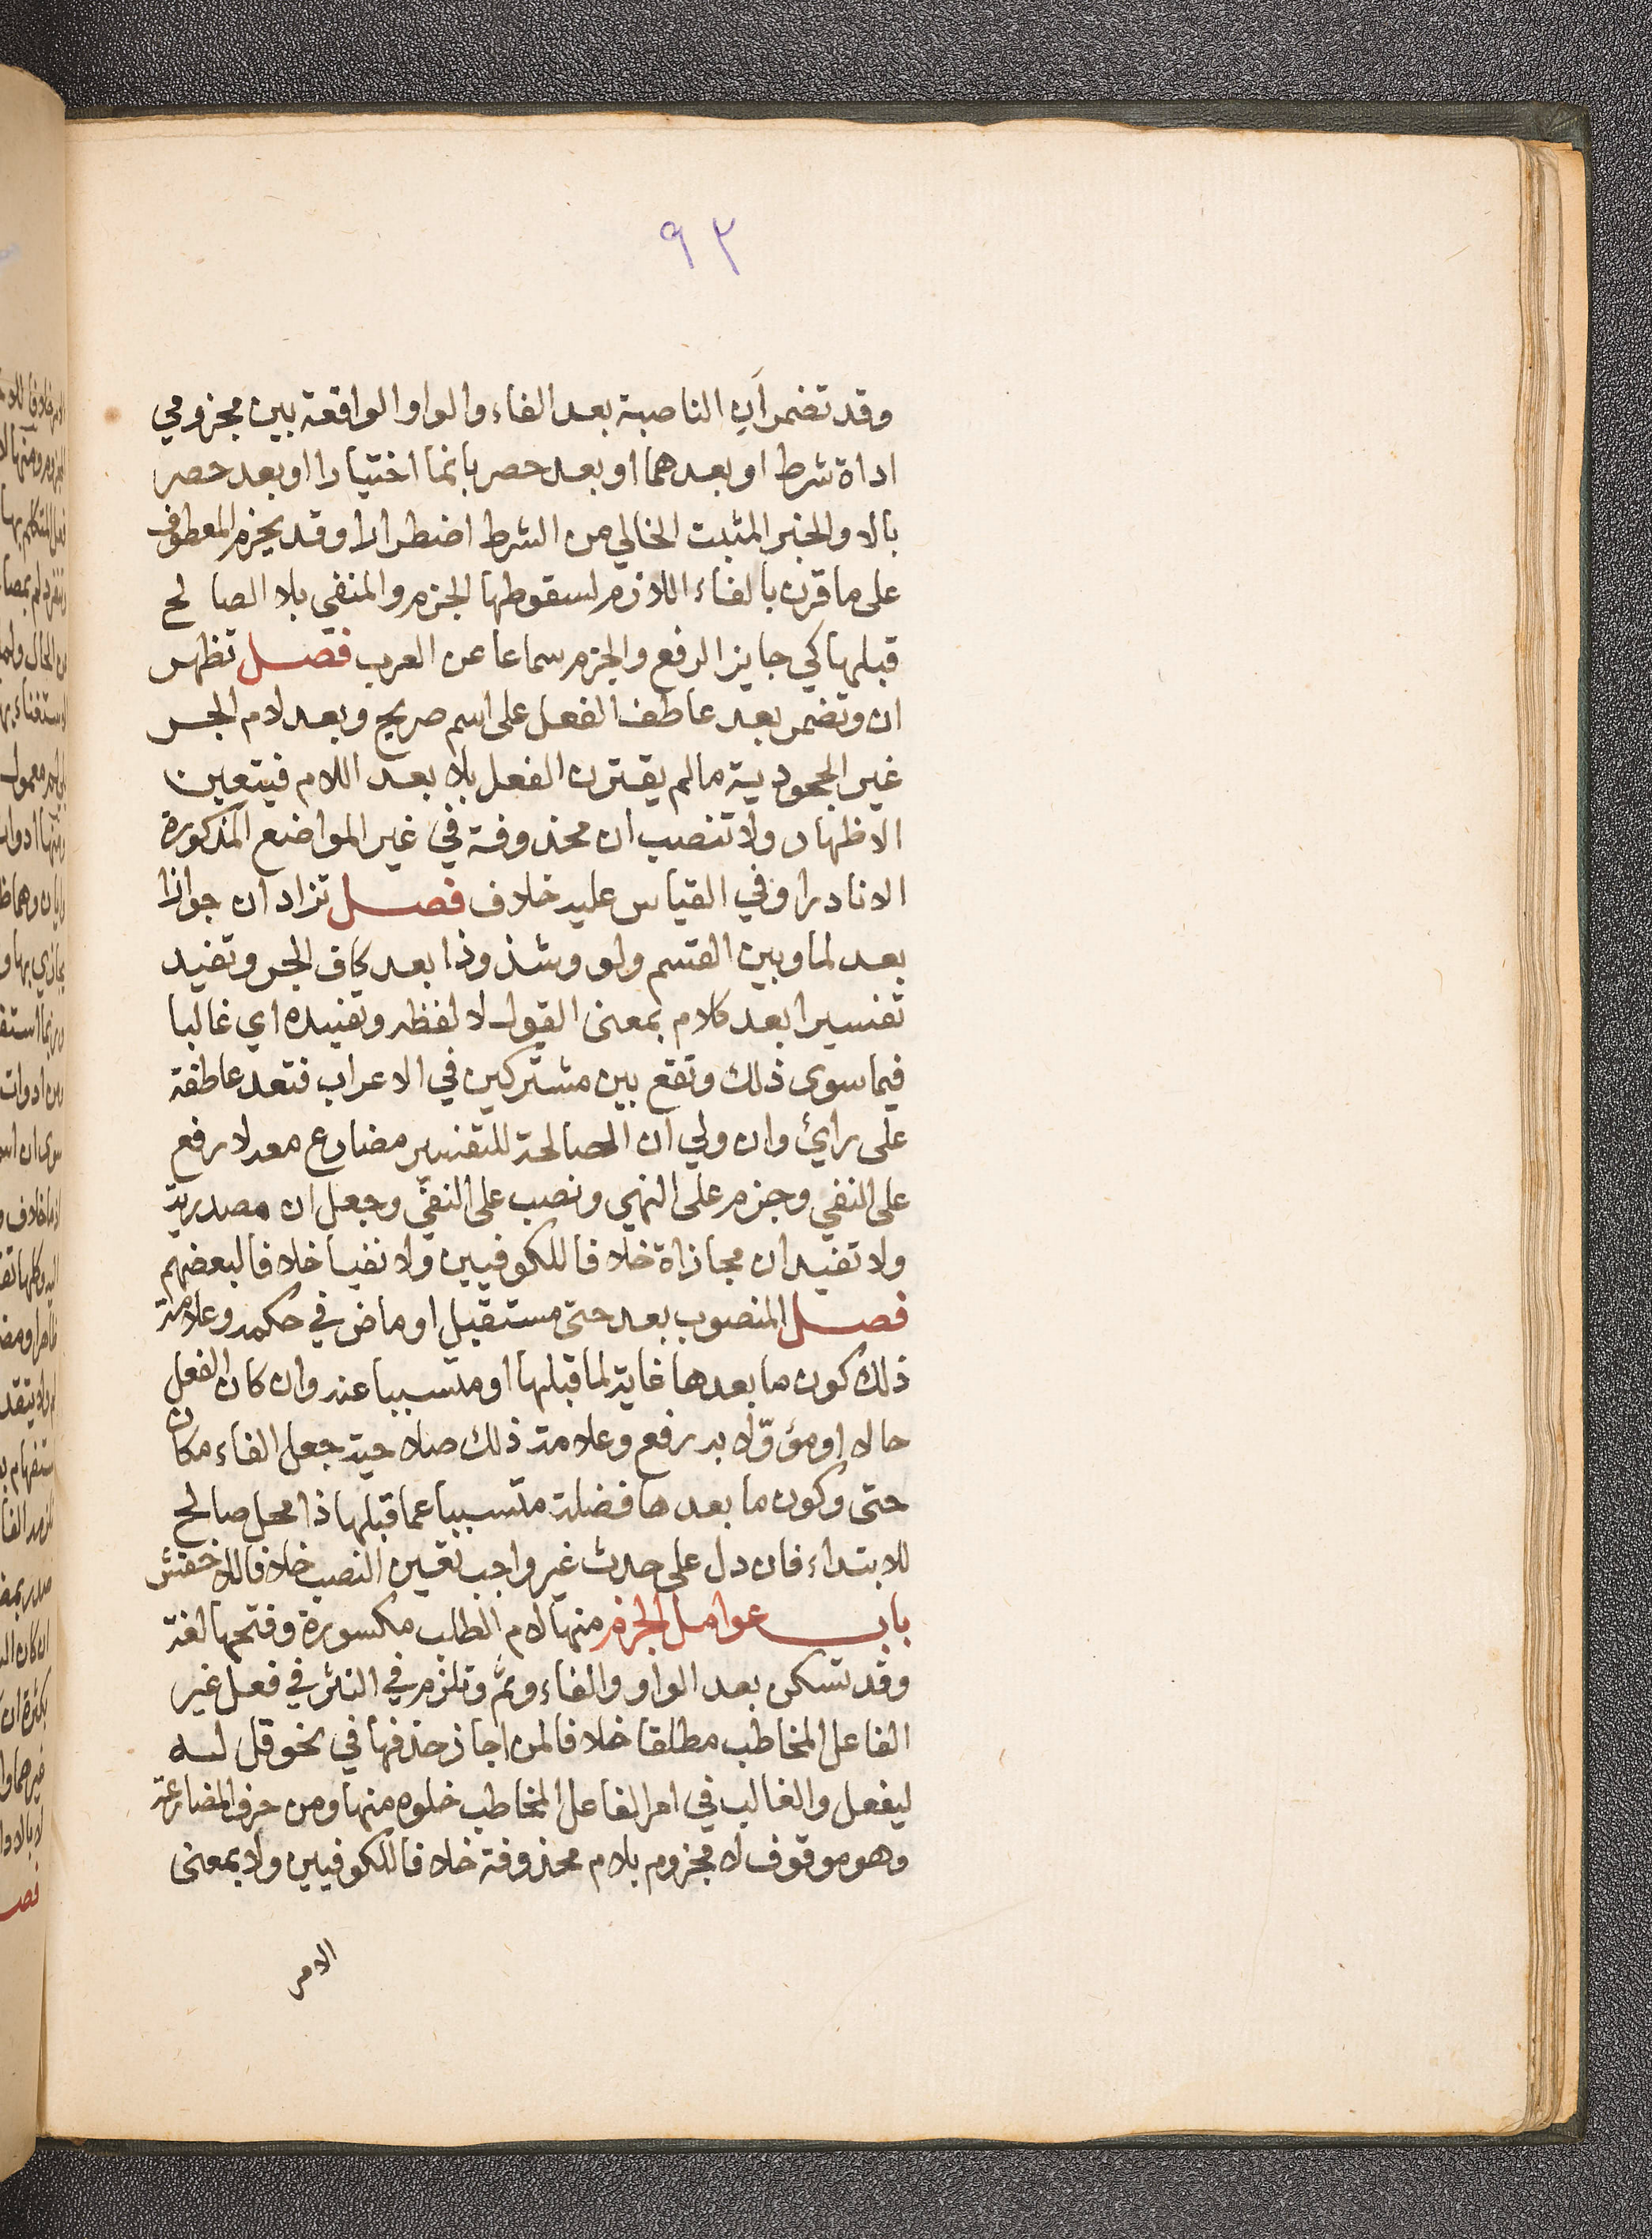 ٩٢
وقد تضمر أن الناصبة بعد الفاء والواو الواقعة بين مجزومي
اداة شرط او بعدهما او بعد حصر بانما اختيارا او بعد حصر
بالا والخبر المثبت الخالي من الشرط اضطرارا وقد يجزم المعطوف
على ما قرن بالفاء اللازم لسقوطها الجزم والمنفي بلا الصالح
قبلها كي جايز الرفع والجزم سماعا عن العرب فصل تظهر
ان وتضمر بعد عاطف الفعل على اسم صريح وبعد لام الجر
غير الجحودية ما لم يقترن الفعل بلا بعد اللام فيتعين
الاظهار ولا تنصب ان محذوفة في غير المواضع المذكورة
الا نادرا وفي القياس عليه خلاف فصل تزاد ان جوازا
بعد لما وبين القسم ولو وشذوذا بعد كاف الجر وتفيد
تفسيرا بعد كلام بمعنى القول لا لفظه وتفيده اي غالبا
فيما سوى ذلك وتقع بين مشتركين في الاعراب فتعد عاطفة
على رايئ وان ولي أن الصالحة للتفسير مضارع معه لا رفع
على النفي وجزم على النهي ونصب على النفي وجعل ان مصدرية
ولا تفيد ان مجازاة خلافا للكوفيين ولا نفيا خلافا لبعضهم
فصل المنصوب بعد حتى مستقبل او ماض في حكمه وعلامة
ذلك كون ما بعدها غاية لما قبلها او متسببا عنه وان كان الفعل
حالا او مؤوّلا به رفع وعلامة ذلك صلاحية جعل الفاء مكان
حتى وكون ما بعدها فضلة متسببا عما قبلها ذا محل صالح
للابتداء فان دل على حدث غير واجب تعين النصب خلافا للاخفش
باب عوامل الجزم منها لام الطلب مكسورة وفتحها لغة
وقد تسكن بعد الواو والفاء وثم وتلزم في النثر في فعل غير
الفاعل المخاطب مطلقا خلافا لمن اجاز حذفها في نحو قل له
ليفعل والغالب في امر الفاعل المخاطب خلوه منها ومن حرف المضارعة
وهو موقوف لا مجزوم بلام محذوفة خلافا للكوفيين ولا بمعنى
الامر